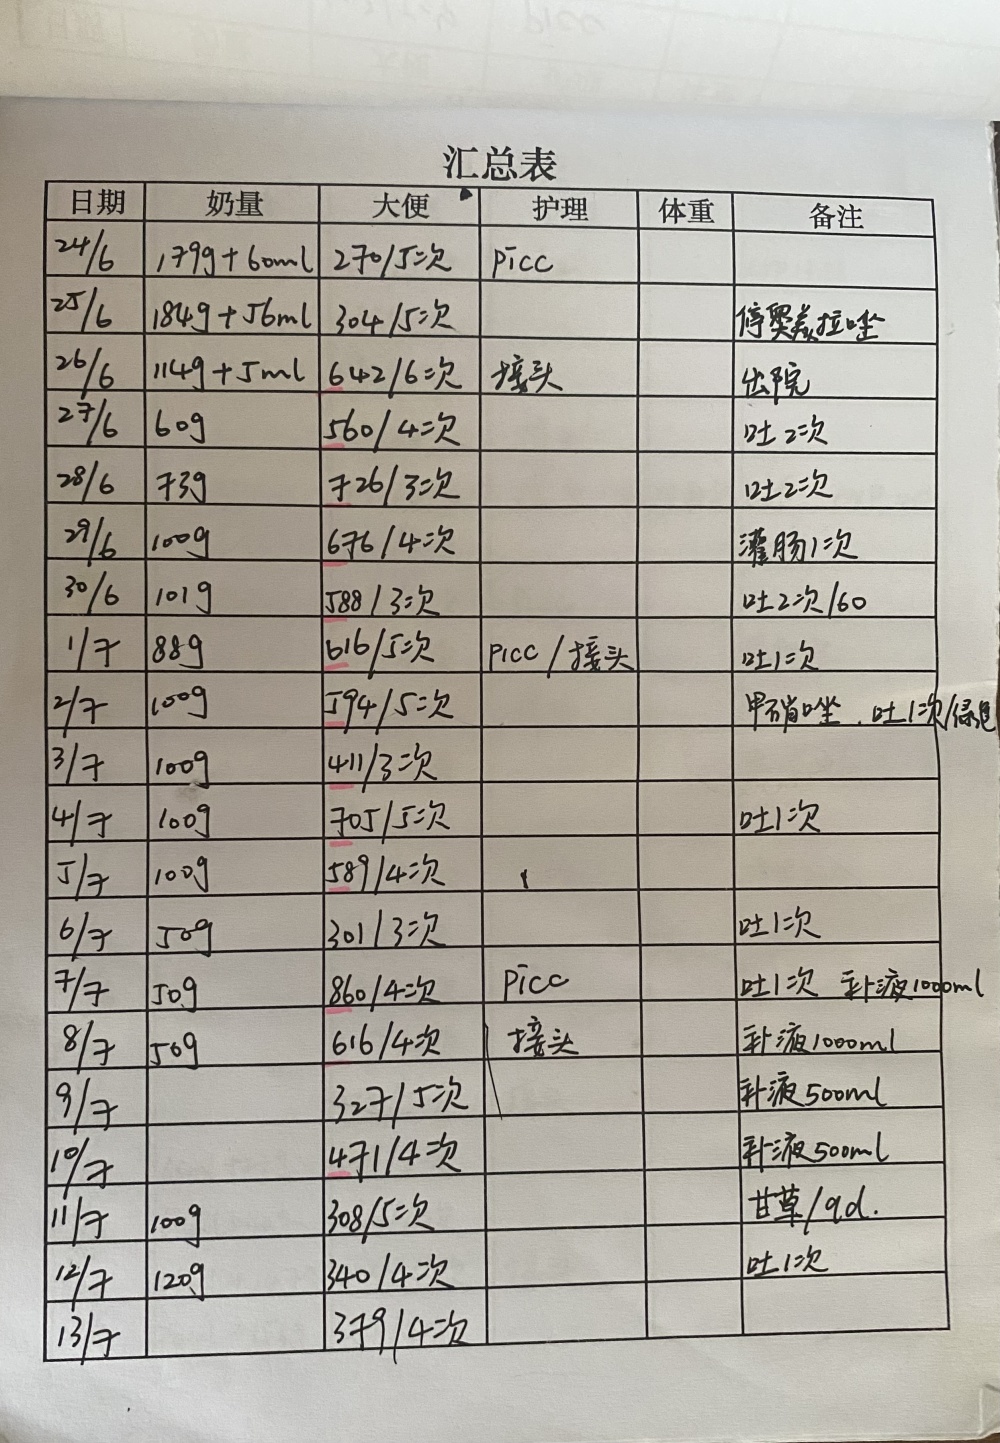 汇总表
日期 奶量 大便 护理 体重 备注
24/6 179g+60ml 270/5次 PICC
25/6 184g+56ml 304/5次 停奥美拉唑
26/6 114g+5ml 642/6次 接头 出院
27/6 60g 560/4次 吐2次
28/6 73g 726/3次 吐2次
29/6 100g 676/4次 灌肠1次
30/6 101g 588/3次 吐2次/60
1/7 88g 616/5次 PICC/接头 吐1次
2/7 100g 594/5次 甲硝唑.吐1次/绿色
3/7 100g 411/3次
4/7 100g 705/5次 吐1次
5/7 100g 589/4次
6/7 50g 301/3次 吐1次
7/7 50g 860/4次 PICC 吐1次 补液1000ml
8/7 50g 616/4次 接头 补液1000ml
9/7 327/5次 补液500ml
10/7 471/4次 补液500ml
11/7 100g 308/5次 甘草/qd.
12/7 120g 340/4次 吐1次
13/7 379/4次